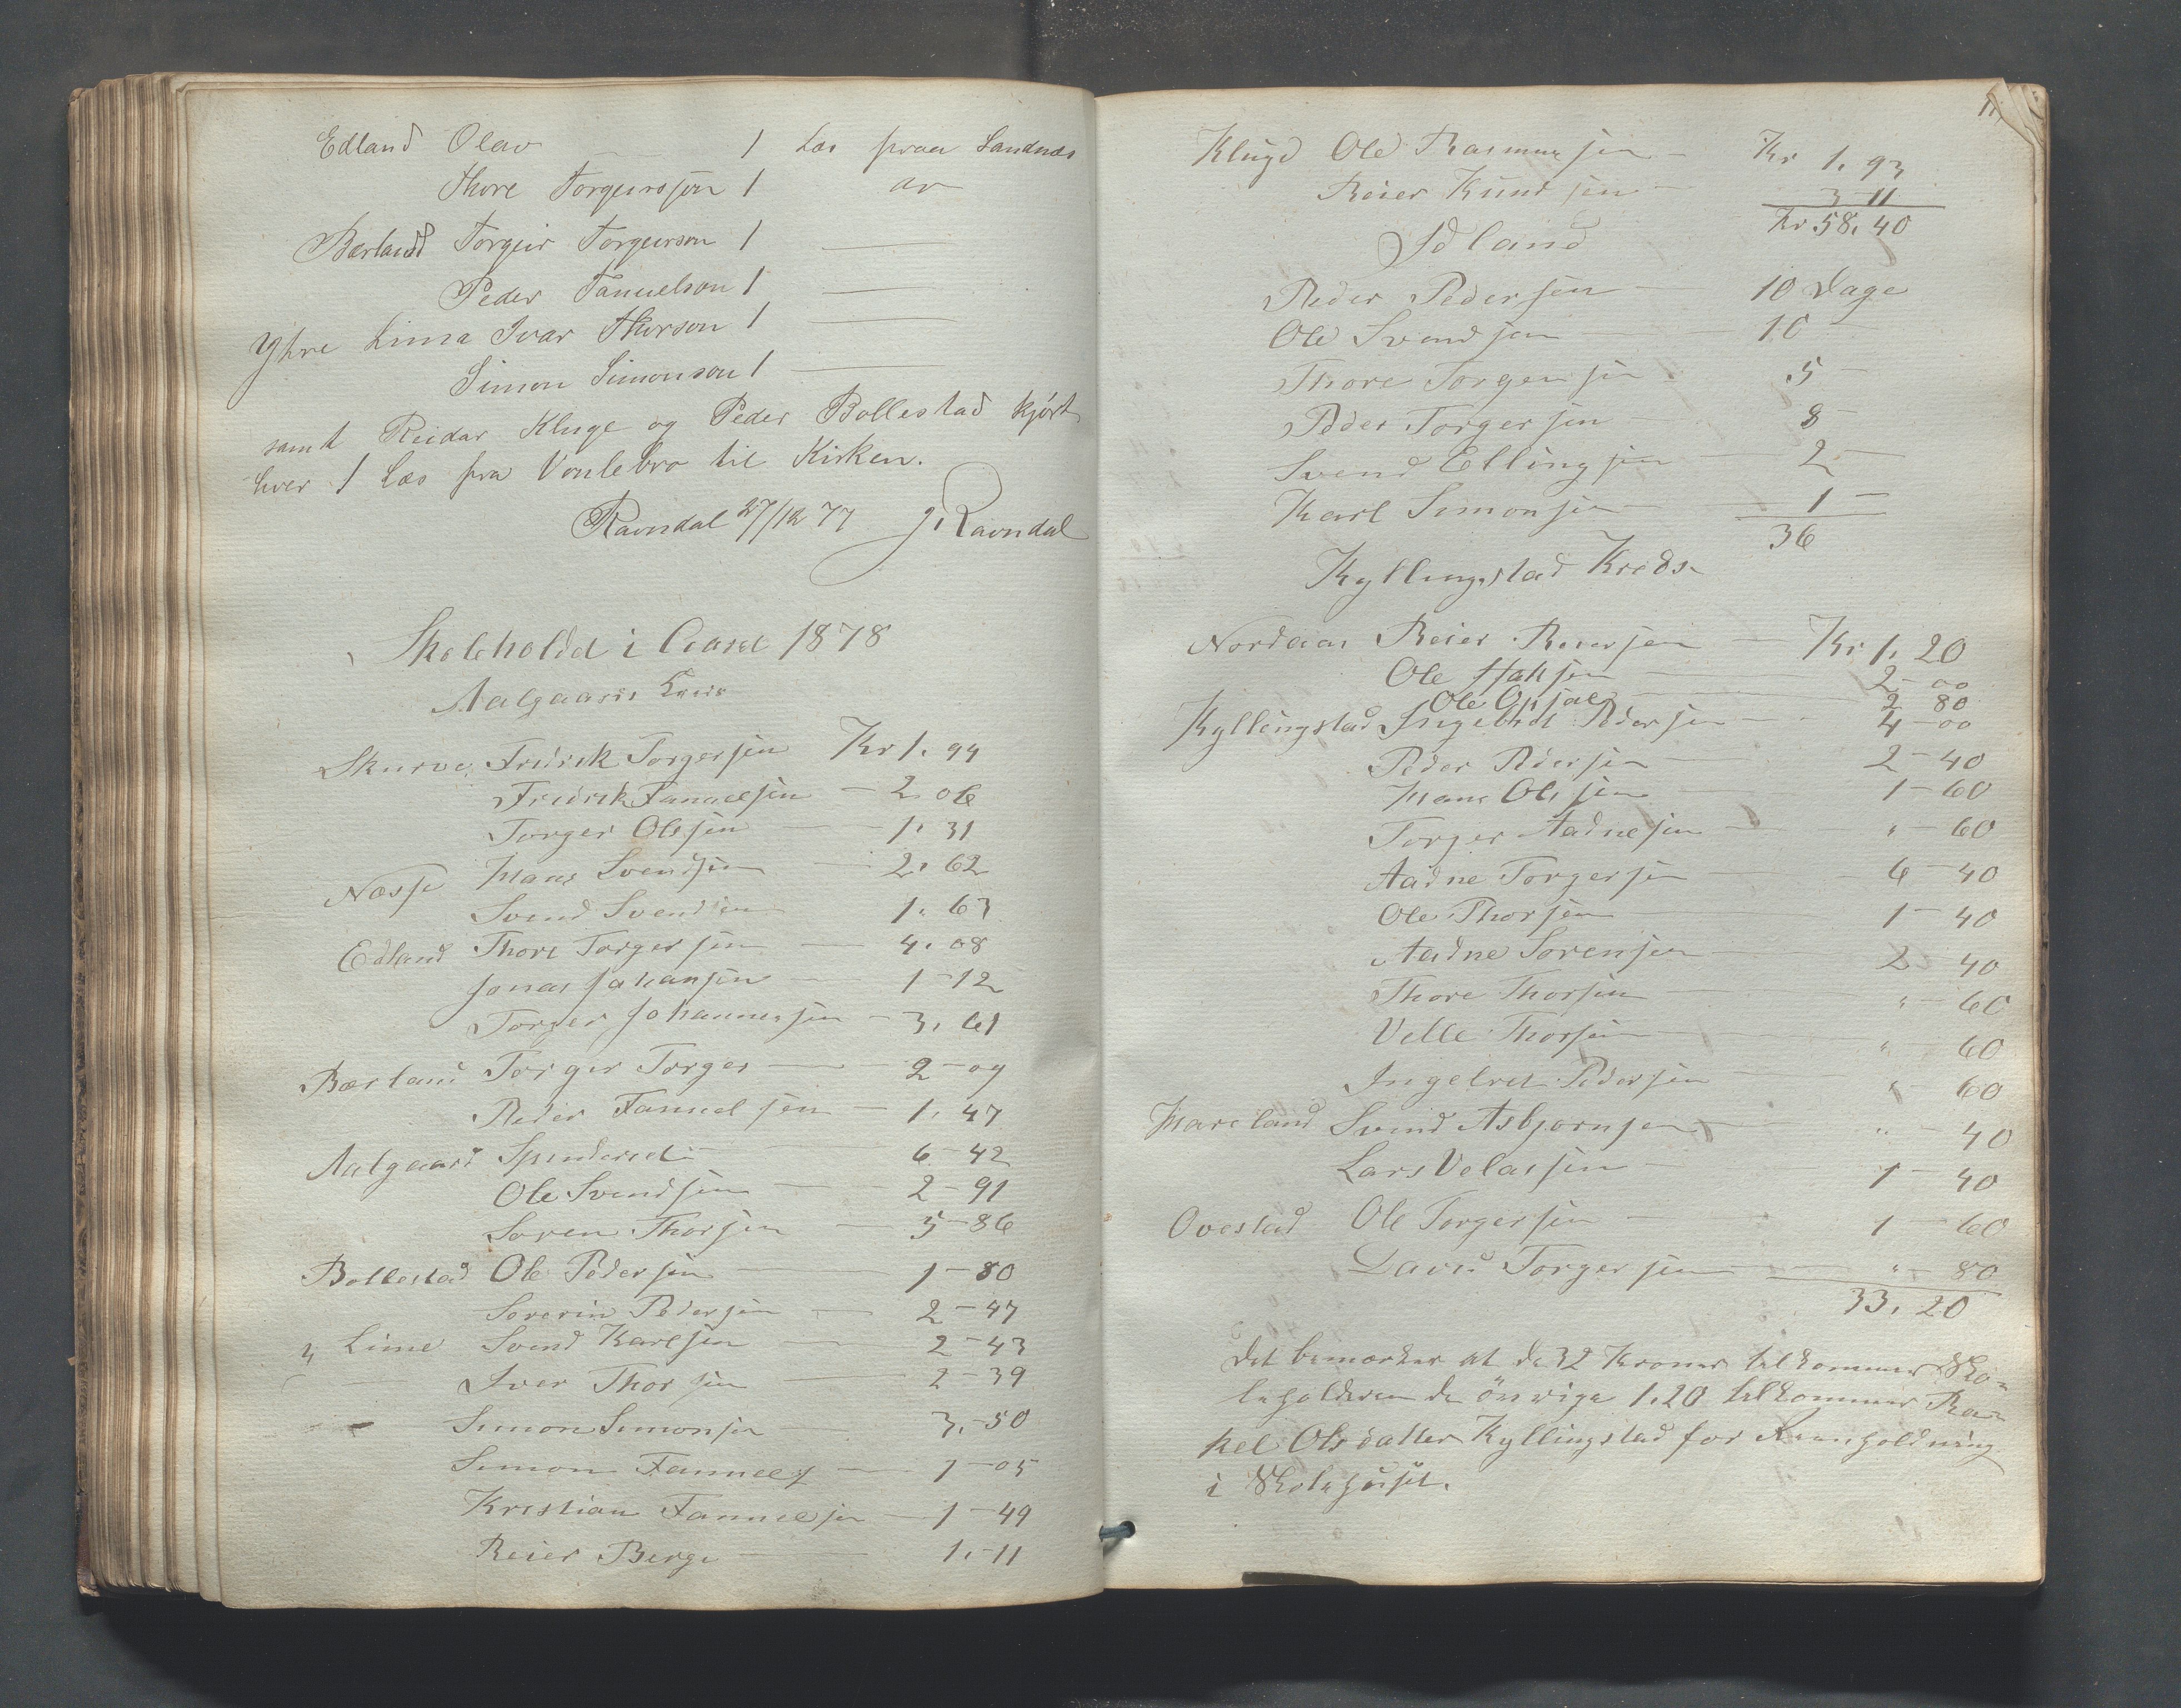 Edland Olav — 1 Læs fraa Sandnæs
Thore Torgeirssøn 1 av
Bærland Torgeir Torgeirson 1 —
Peder Tanuelson 1 —
Ythre Lima Ivar Thorson 1 —
Simon Simonson 1 —
samt Reidar Kluge og Peder Bollestad kjørt
hver 1 Læs fra Vonlebro til Kirken.
Ravndal 27/12 77 J. Ravndal
Skoleholdet i Aaret 1878
Aalgaards Kreds
Skurve Fredrik Torgersen Kr 1. 94
Fredrik Fanuelsen — 2. 06
Torger Olessen — 1. 31
Næsse Hans Svendsen — 2. 62
Svend Svendsen 1. 63
Edland Thore Torgersen — 4. 08
Jonas Johansen — 1 - 12
Torger Johannessen — 3. 61
Bærland Torger Torger — 2 - 09
Peder Fanuelsen — 1. 47
Aalgaard Spinderiet — 6 - 42
Ole Svendsen — 2 - 91
Søren Thorsen — 5 - 86
Bollestad Ole Pedersen — 1 - 80
Severin Pedersen — 2 - 47
y Lime Svend Karlsen — 2 - 43
— Iver Thorsen — 2 - 39
— Simon Simonsen — 3. - 50
Simon Fanuels — 1 - 05
Kristian Fanuelsen — 1 - 49
Reier Berge — 1. - 11
Kluge Ole Rasmussen — Kr 1. 93
Reier Knudsen — 3 - 11
Kr. 58. 40
Idland
Peder Pedersen — 10 Dage
Ole Svendsen — 10 —
Thore Torgersen 5 —
Peder Torgersen — 8 —
Svend Ellingsen — 2 —
Karl Simonsen — 1 —
36
Kyllingstad Kreds
Nordaas Reier Reiersen — Kr 1. 20
Ole Hansen — 2 - 00
Ole Opsal — 2 80
Kyllingstad Ingebret Pedersen — 4 - 00
Peder Pedersen — 2 - 40
Hans Olsen — 1 - 60
Torger Aadnesen — " - 60
Aadne Torgersen — 6 - 40
Ole Thorsen — 1 - 40
Aadne Sørensen — 2 - 40
Thore Thorsen — " - 60
Velle Thorsen — " - 60
Ingebret Pedersen — " 60
Hareland Svend Asbjørnsen — " - 40
Lars Velassen — 1 - 40
Ovestad Ole Torgersen — 1 - 60
David Torgersen — " - 80
33. 20
Det bemærkes at de 32 Kroner tilkommer Sko-
leholderen de øvrige 1.20 tilkommer Ra-
kel Olsdatter Kyllingstad for Renholdning
i Skolehuset.